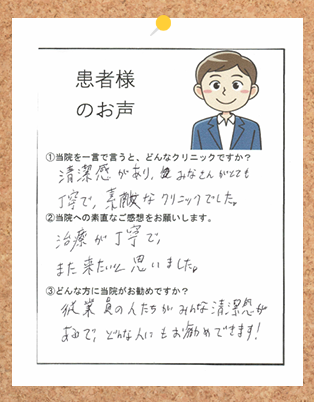 患者様
のお声
①当院を一言で言うと、どんなクリニックですか？
清潔感があり、みなさんがとても
丁寧で、素敵なクリニックでした。
②当院への素直なご感想をお願いします。
治療が丁寧で、
また来たいと思いました。
③どんな方に当院がお勧めですか？
従業員の人たちがみんな清潔感が
あるので、どんな人にもお勧めできます！